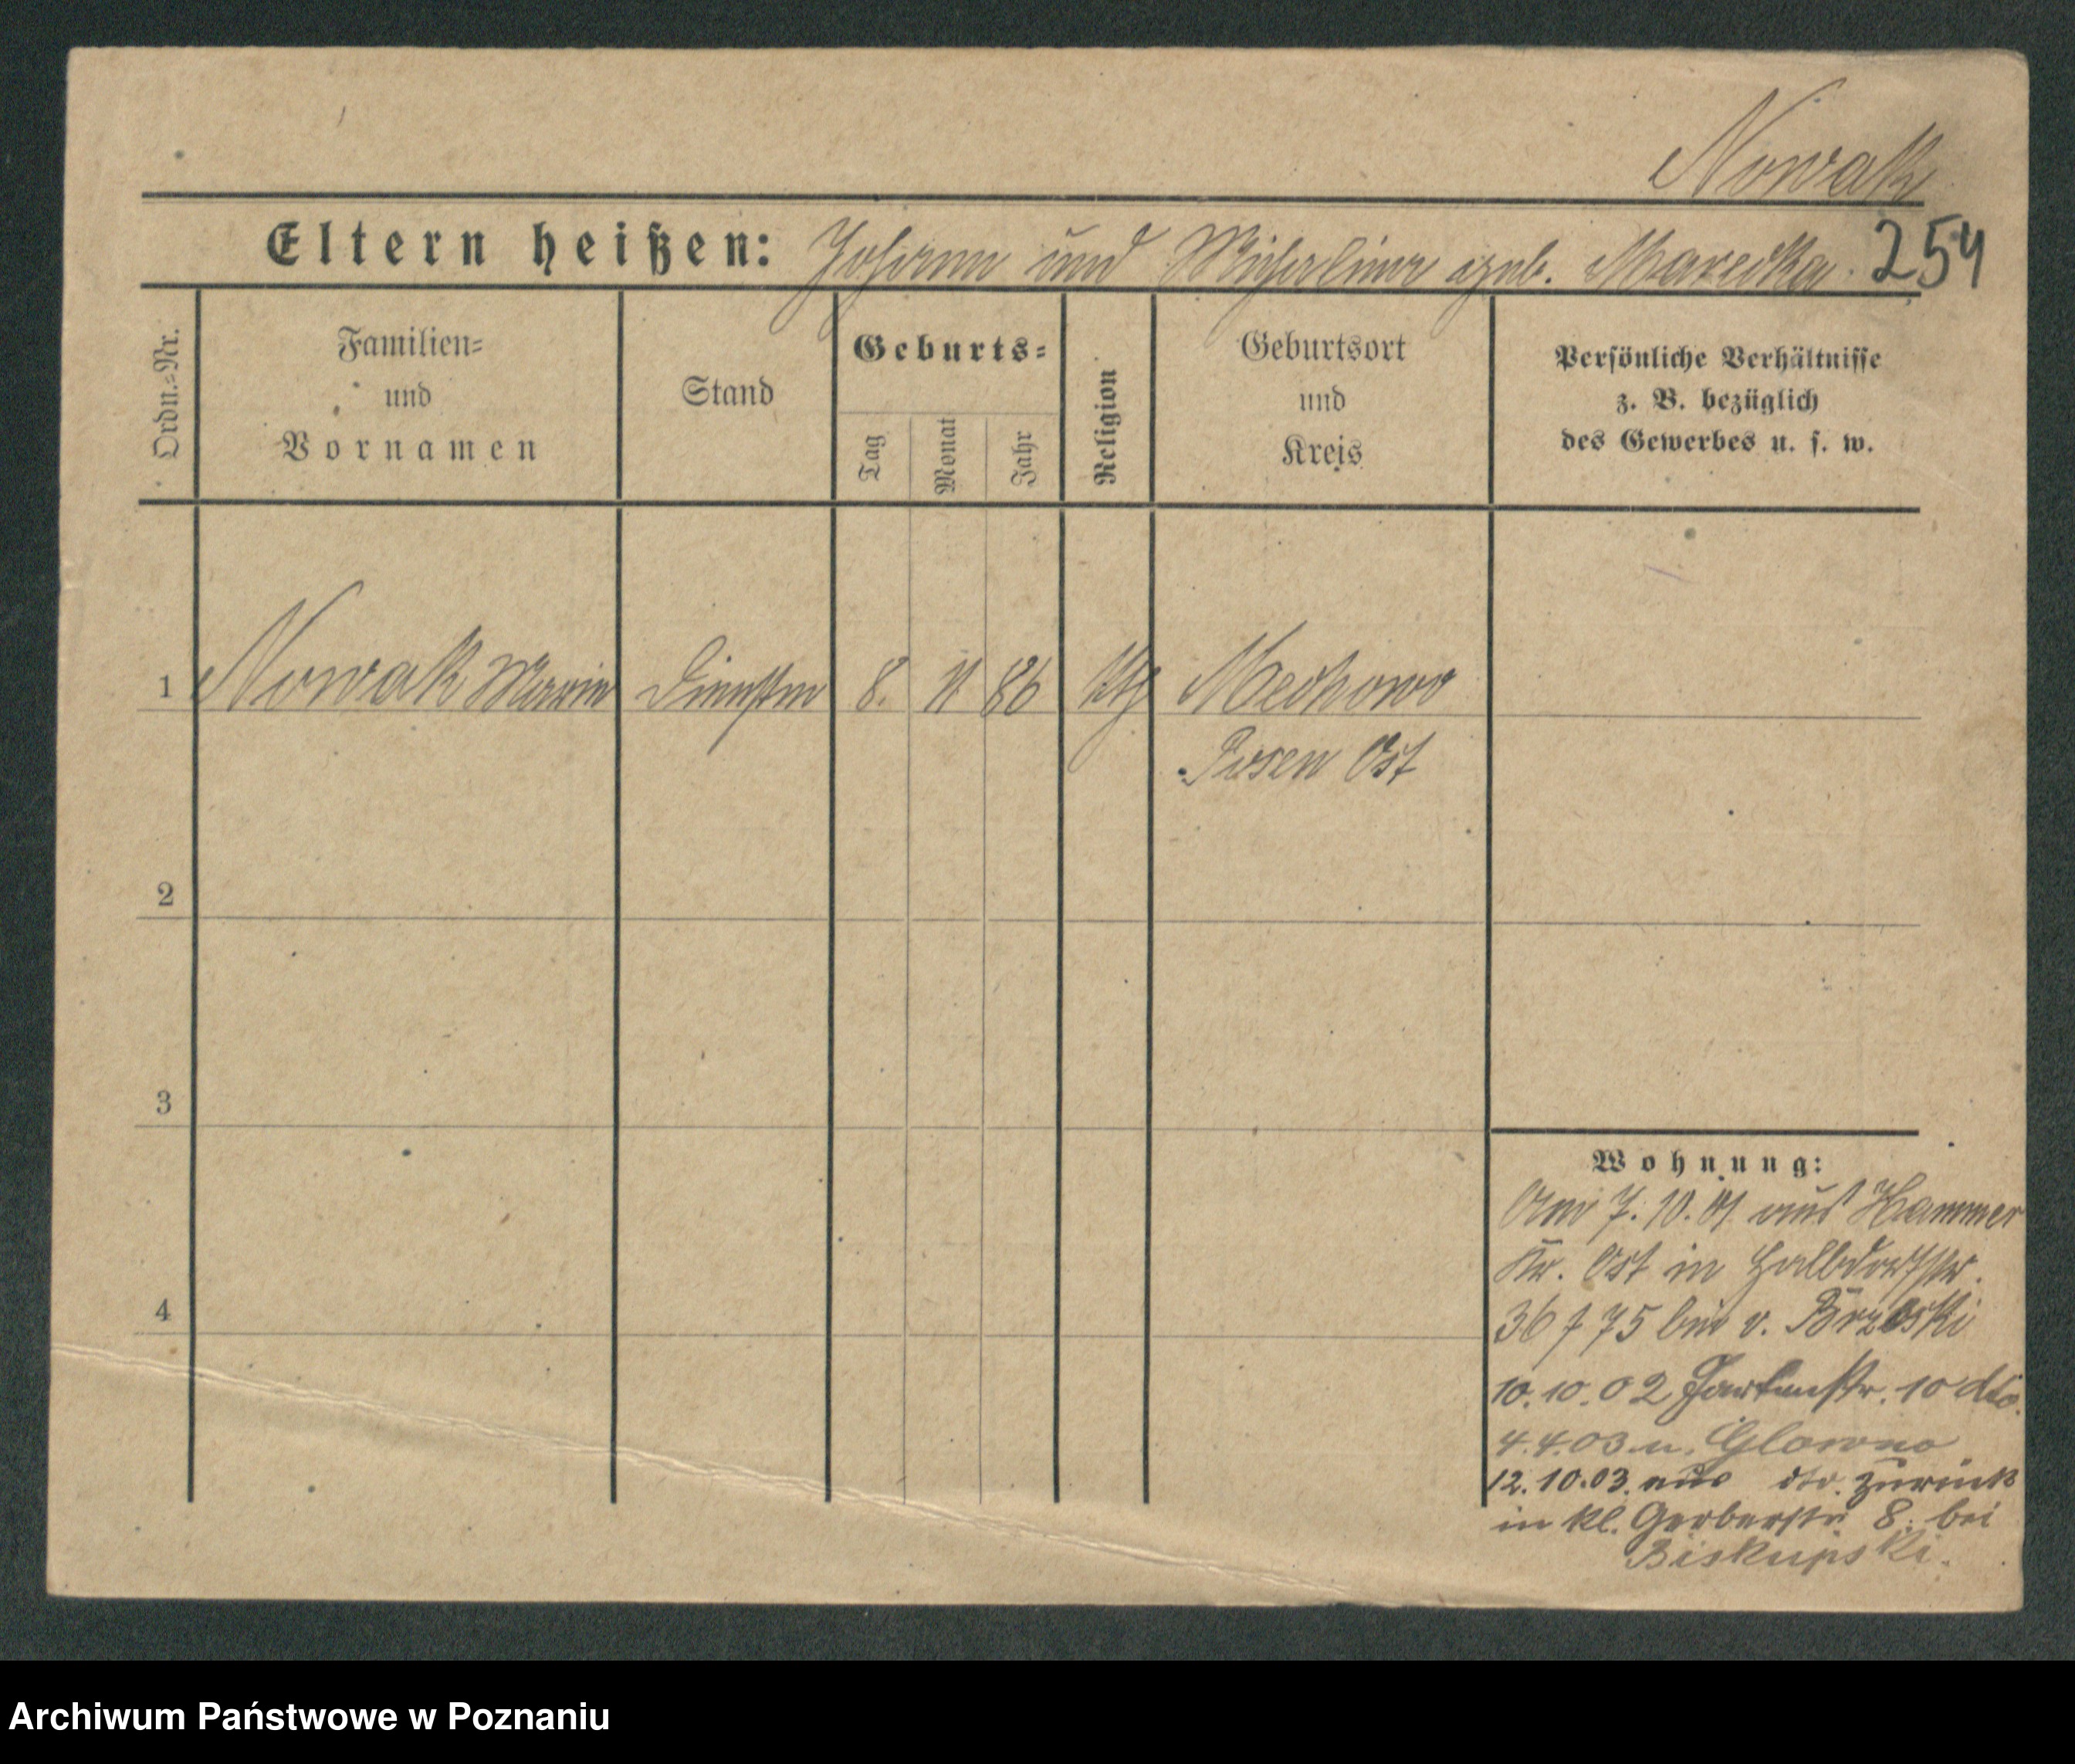 Nowak
Eltern heißen: Johann und Michalina geb. Marecka. 254
Ordn.=Nr.
Familien=
und
Vornamen
Stand
Geburts=
Tag
Monat
Jahr
Religion
Geburtsort
und
Kreis
Persönliche Verhältnisse
z. B. bezüglich
des Gewerbes u. s. w.
1 Nowak Marie 8. 11 86 ktg Mechowo
Posen Ost
2
3
4
Wohnung:
Am 7. 10. 01 aus Hammer
Kr. Ost in Halbdorfstr.
36 f 75 bei v. Brzeski
10. 10. 02 Gartenstr. 10 dto.
4. 4. 03 n. Glowno
12. 10. 03. aus dto. zurück
in kl. Gerberstr 8. bei
Biskupski.
Archiwum Państwowe w Poznaniu